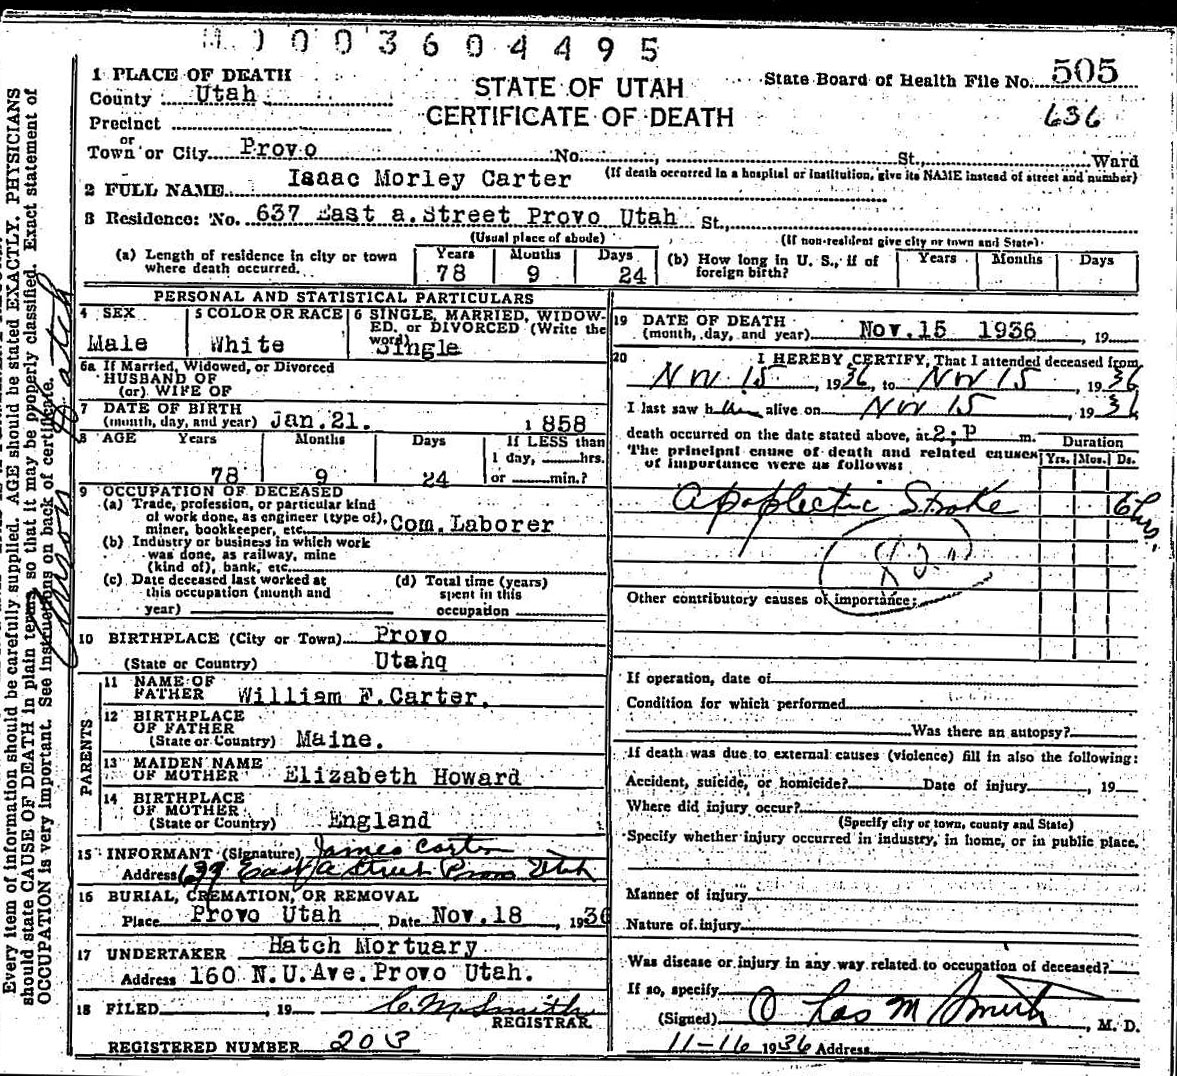 0003604495
1 PLACE OF DEATH
STATE OF UTAH
State Board of Health File No. 505
County Utah
CERTIFICATE OF DEATH
636
Precinct
or
Town or City Provo No. , St., Ward
(If death occurred in a hospital or institution, give its NAME instead of street and number)
2 FULL NAME Isaac Morley Carter
3 Residence: No. 637 East a.Street Provo Utah St.,
(Usual place of abode) (If non-resident give city or town and State)
(a) Length of residence in city or town where death occurred. Years 78 Months 9 Days 24
(b) How long in U. S., if of foreign birth? Years Months Days
PERSONAL AND STATISTICAL PARTICULARS
4 SEX
Male
5 COLOR OR RACE
White
6 SINGLE, MARRIED, WIDOW-
ED, or DIVORCED (Write the
word)
Single
6a If Married, Widowed, or Divorced
HUSBAND OF
(or) WIFE OF
7 DATE OF BIRTH
(month, day, and year) Jan.21. 1858
8 AGE Years Months Days If LESS than
1 day, hrs.
78 9 24 or min.?
9 OCCUPATION OF DECEASED
(a) Trade, profession, or particular kind
of work done, as engineer (type of),
miner, bookkeeper, etc. Com.Laborer
(b) Industry or business in which work
was done, as railway, mine
(kind of), bank, etc.
(c) Date deceased last worked at
this occupation (month and
year)
(d) Total time (years)
spent in this
occupation
10 BIRTHPLACE (City or Town) Provo
(State or Country) Utahq
PARENTS
11 NAME OF
FATHER William F.Carter.
12 BIRTHPLACE
OF FATHER
(State or Country) Maine.
13 MAIDEN NAME
OF MOTHER Elizabeth Howard
14 BIRTHPLACE
OF MOTHER
(State or Country) England
15 INFORMANT (Signature) James Carter
Address 637 East A Street Provo Utah
16 BURIAL, CREMATION, OR REMOVAL
Place Provo Utah Date Nov.18 , 1936
17 UNDERTAKER Hatch Mortuary
Address 160 N.U.Ave.Provo Utah.
18 FILED , 19 C. M. Smith
REGISTRAR
REGISTERED NUMBER 203
19 DATE OF DEATH
(month, day, and year) Nov.15 1936 , 19
20 I HEREBY CERTIFY, That I attended deceased from
Nov 15 , 1936, to Nov 15 , 1936
I last saw him alive on Nov 15 , 1936
death occurred on the date stated above, at 2;P m.
The principal cause of death and related causes
of importance were as follows:
Duration
Yrs. Mos. Ds.
Apoplectic Stroke 6 hrs.
Other contributory causes of importance:
If operation, date of
Condition for which performed
Was there an autopsy?
If death was due to external causes (violence) fill in also the following:
Accident, suicide, or homicide? Date of injury , 19
Where did injury occur?
(Specify city or town, county and State)
Specify whether injury occurred in industry, in home, or in public place.
Manner of injury
Nature of injury
Was disease or injury in any way related to occupation of deceased?
If so, specify
(Signed) Chas M Smith , M. D.
11-16 1936 Address
Every item of information should be carefully supplied. AGE should be stated EXACTLY. PHYSICIANS
should state CAUSE OF DEATH in plain terms, so that it may be properly classified. Exact statement of
OCCUPATION is very important. See instructions on back of certificate.